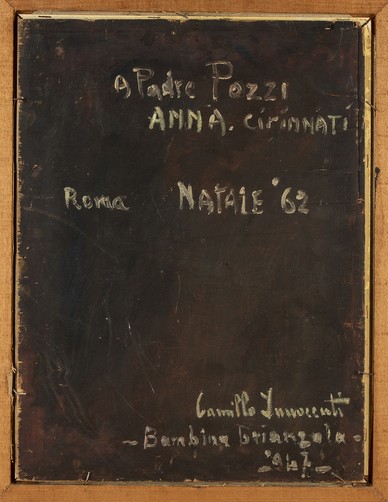 A Padre Pozzi
ANNA. CIRINNATI
Roma NATALE '62
Camillo Innocenti
- Bambina Brianzola -
- 947 -